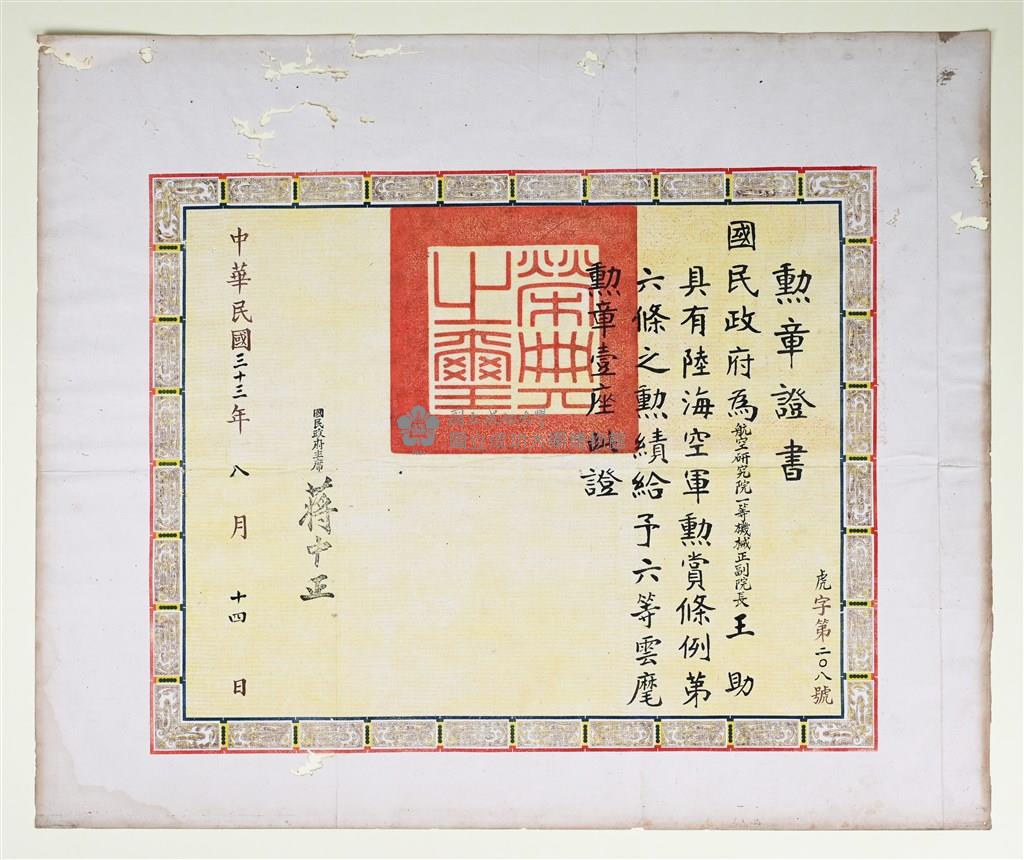 勲章證書
國民政府為航空研究院一等機械正副院長王助
具有陸海空軍勲賞條例第
六條之勲績給予六等雲麾
勲章壹座此證
虎字第二〇八號
榮典之璽
國民政府主席
蔣中正
中華民國三十三年八月十四日